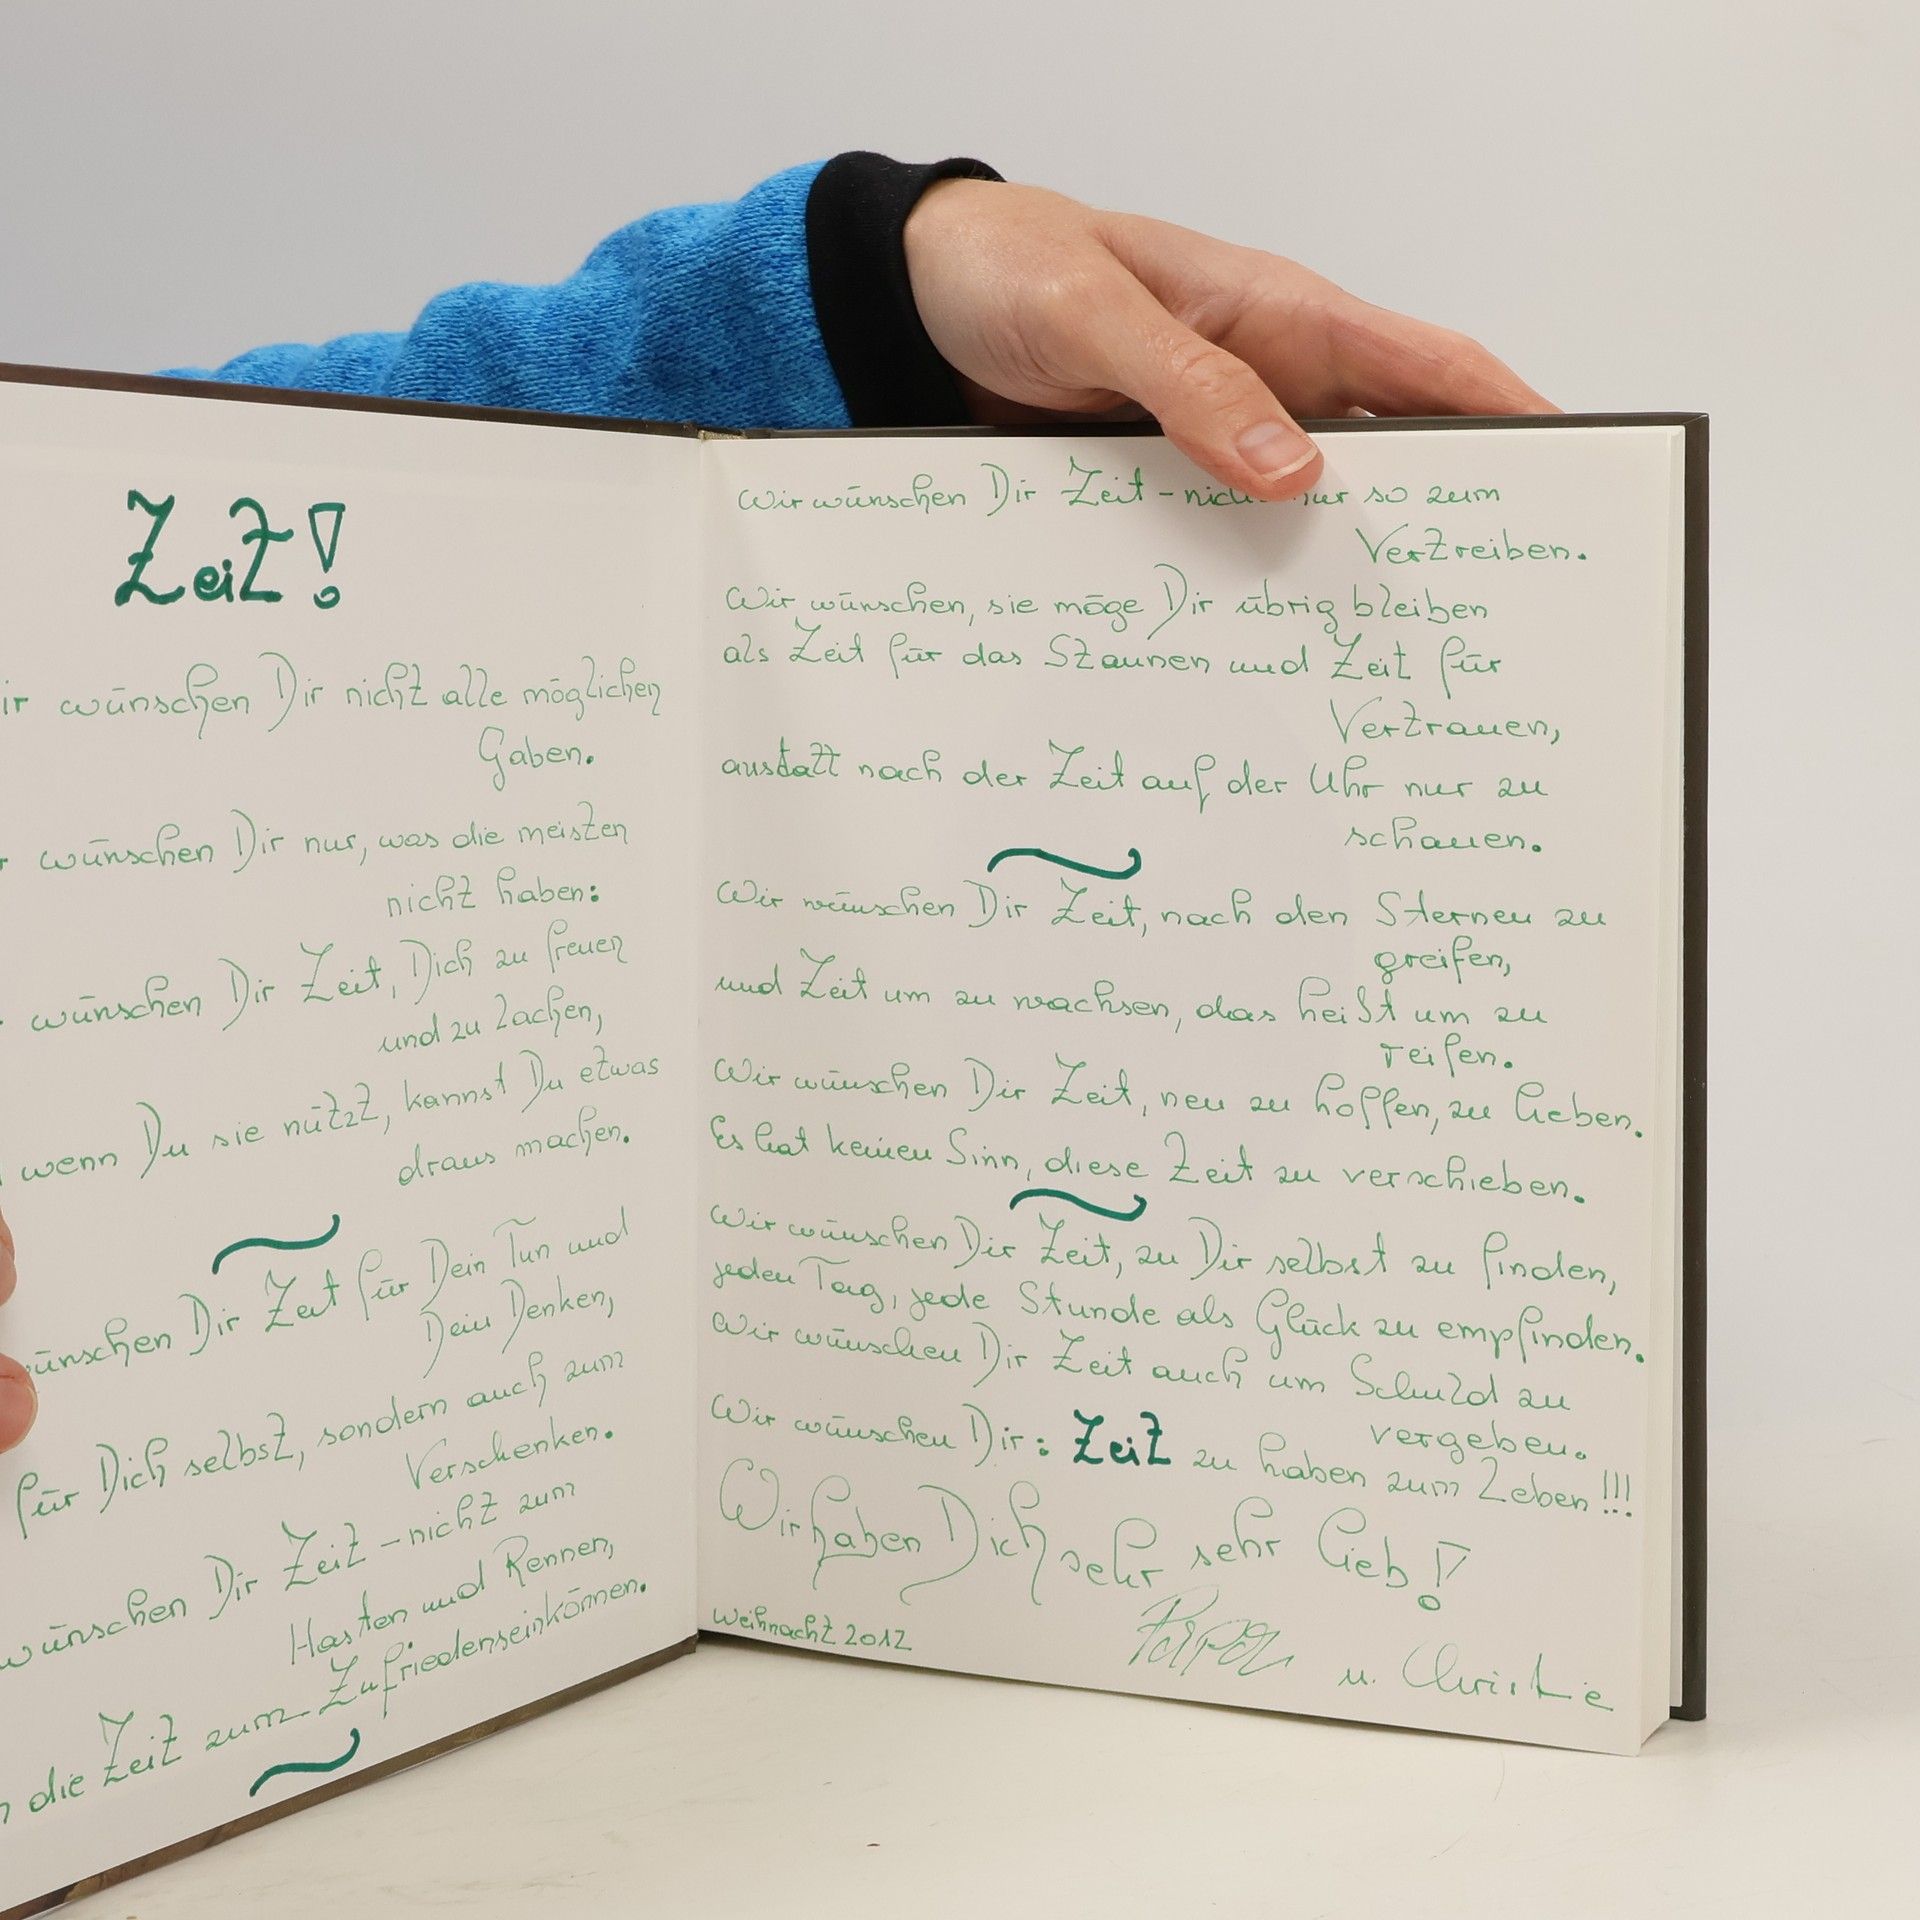 Zeit!
ir wünschen Dir nicht alle möglichen
Gaben.
r wünschen Dir nur, was die meisten
nicht haben:
wünschen Dir Zeit, Dich zu freuen
und zu lachen,
wenn Du sie nützt, kannst Du etwas
draus machen.
wünschen Dir Zeit für Dein Tun und
Dein Denken,
für Dich selbst, sondern auch zum
Verschenken.
wünschen Dir Zeit - nicht zum
Hasten und Rennen,
n die Zeit zum Zufriedenseinkönnen.
Wir wünschen Dir Zeit - nich nur so zum
Vertreiben.
Wir wünschen, sie möge Dir übrig bleiben
als Zeit für das Staunen und Zeit für
Vertrauen,
anstatt nach der Zeit auf der Uhr nur zu
schauen.
Wir wünschen Dir Zeit, nach den Sternen zu
greifen,
und Zeit um zu wachsen, das heißt um zu
reifen.
Wir wünschen Dir Zeit, neu zu hoffen, zu lieben.
Es hat keinen Sinn, diese Zeit zu verschieben.
Wir wünschen Dir Zeit, zu Dir selbst zu finden,
jeden Tag, jede Stunde als Glück zu empfinden.
Wir wünschen Dir Zeit auch um Schuld zu
vergeben.
Wir wünschen Dir: Zeit zu haben zum Leben!!!
Wir haben Dich sehr sehr lieb!
Weihnacht 2012
Papa u. Christie